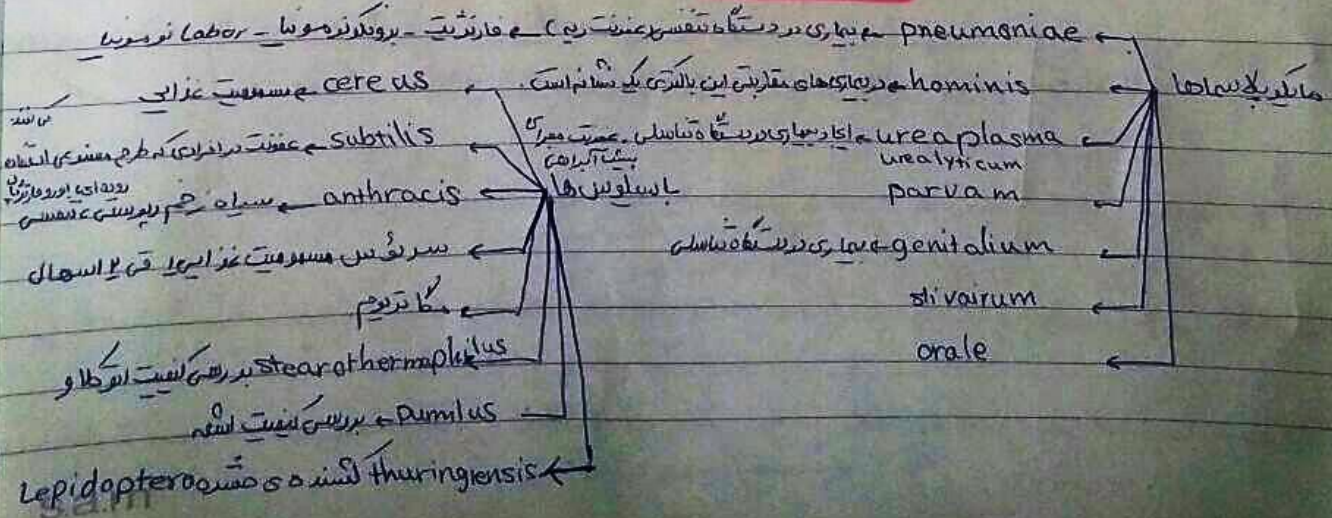 مایکوپلاسماها
pneumoniae ← بیماری در دستگاه تنفسی (عفونت ریه) ← فارنژیت - برونکوپنومونیا - Lobar نومونیا
hominis ← در بیماری‌های مقاربتی این باکتری یک نشانه است.
ureaplasma ← ایجاد بیماری در دستگاه تناسلی. عفونت مجرای
urealyticum
parvam
genitalium ← بیماری در دستگاه تناسلی
slivairum
orale
باسیلوس‌ها
cereus ← مسمومیت غذایی
subtilis ← عفونت در افرادی که طرح مصنوعی استفاده می کنند
anthracis ← سیاه زخم پوستی، تنفسی روده‌ای
سرئوس مسمومیت غذایی قی و اسهال
مگاتریوم
stearothermophilus بررسی کیفیت اتوکلاو
Pumilus ← بررسی کیفیت اشعه
thuringiensis کشنده ی حشره Lepidoptera